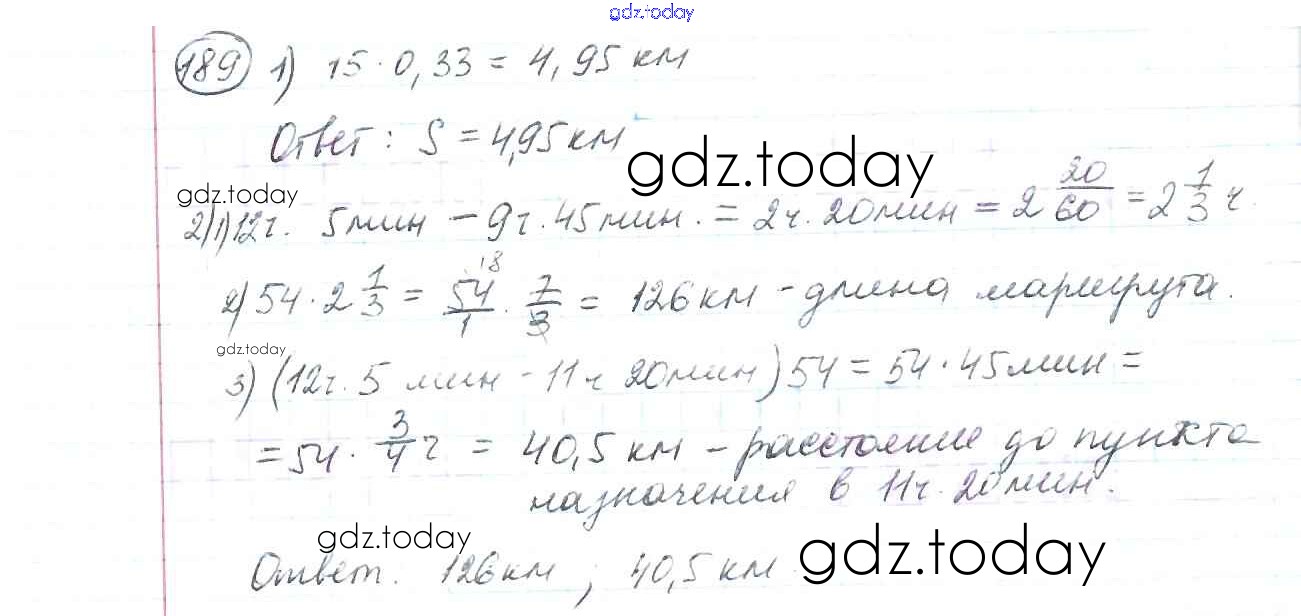 gdz.today
189 1) 15 · 0,33 = 4,95 км
Ответ: S = 4,95 км
gdz.today
gdz.today
2) 1) 12 ч. 5 мин – 9 ч. 45 мин. = 2 ч. 20 мин = 2 20/60 = 2 1/3 ч.
2) 54 · 2 1/3 = 54/1 · 7/3 = 126 км - длина маршрута.
gdz.today
3) (12 ч. 5 мин - 11 ч 20 мин) 54 = 54 · 45 мин =
= 54 · 3/4 ч = 40,5 км – расстояние до пункта
назначения в 11 ч. 20 мин.
gdz.today
gdz.today
Ответ. 126 км ; 40,5 км